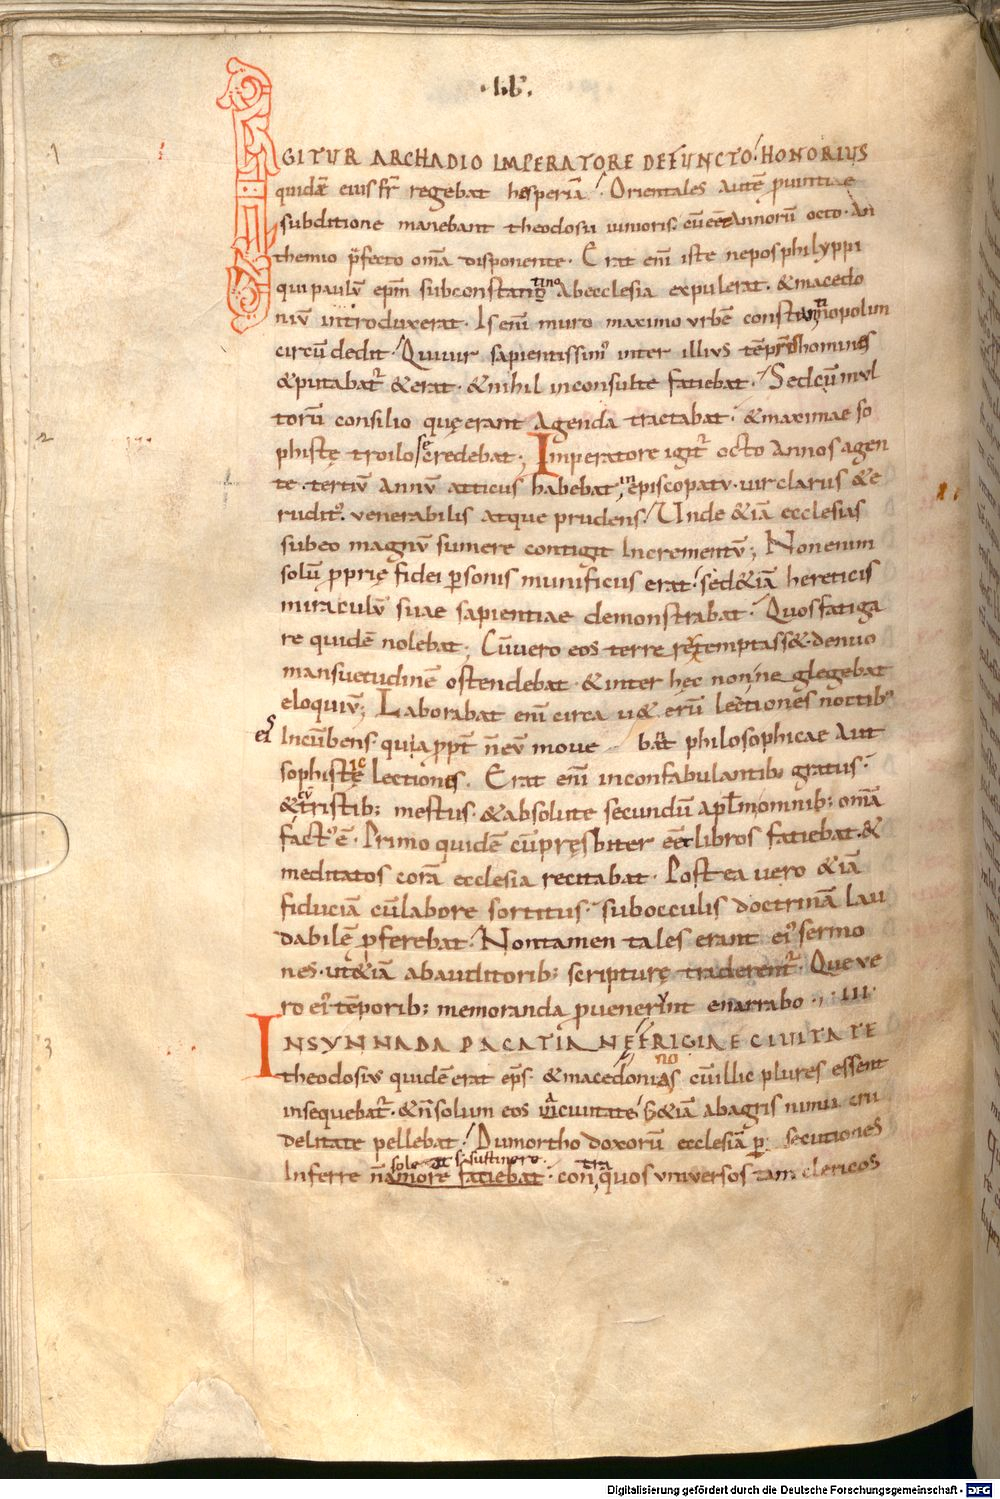 · lib ·
IGITUR ARCHADIO IMPERATORE DEFUNCTO. HONORIUS
quidē eius fr̄ regebat hesperiā. Orientales autē prouintiae
subditione manebant theodosii iunioris. cū eēt annorū octo. An
themio p̄fecto om̄a disponente. Erat eni iste nepos philyppi
qui paulū ep̄m sub constantino ab ecclesia expulerat. & macedo
niū introduxerat. Is eni muro maximo urbē constantinopolim
circūdedit. Qui uir sapientissim' inter illius tēporis homines
& putabat' & erat. & nihil inconsulte fatiebat. Sed cū mul
torū consilio quę erant agenda tractabat. & maximae so
phistę troilo se credebat; Imperatore igit' octo annos agen
te. tertiū annū atticus habebat in episcopatu. uir clarus & e
rudit'. uenerabilis atque prudens. Unde &iā ecclesias
sub eo magnū sumere contigit incrementū; Non enim
solū proprię fidei personis munificus erat. sed &iā hereticis
miraculū suae sapientiae demonstrabat. Quos fatiga
re quidē nolebat; Cū uero eos terrere temptass&. denuo
mansuetudinē ostendebat. & inter hec non neglegebat
eloquiū; Laborabat eni circa u& erū lectiones noctib'
incūbens. quia pp̄t n̄ eū moue bat philosophicae aut
es
ei
sophisticę lectiones. Erat eni in confabulantib; gratus.
& cū tristib; mestus. & absolute secundū apl̄m omnib; om̄a
fact' ē. Primo quidē cū presbiter eēt libros fatiebat. &
meditatos corā ecclesia recitabat. Post ea uero &iā
fiduciā cū labore sortitus. sub occulis doctrinā lau
dabilē p̄ferebat. Non tamen tales erant ei' sermo
nes. ut &iā ab auditorib; scripturę traderent'. Que ue
ro ei' tēporib; memoranda prouenerunt enarrabo. III.
IN SYNNADA PACATIANE FRIGIAE CIUITATE
theodosius quidē erat ep̄s. & macedonianos cū illic plures essent
insequebat'. & n̄ solum eos a ciuitate. s; &iā ab agris nimia cru
delitate pellebat. Dum orthodoxorū ecclesiā persecutiones
solet sustinere.
inferre n̄ amore fatiebat. contra quos uniuersos tam clericos
Digitalisierung gefördert durch die Deutsche Forschungsgemeinschaft - DFG